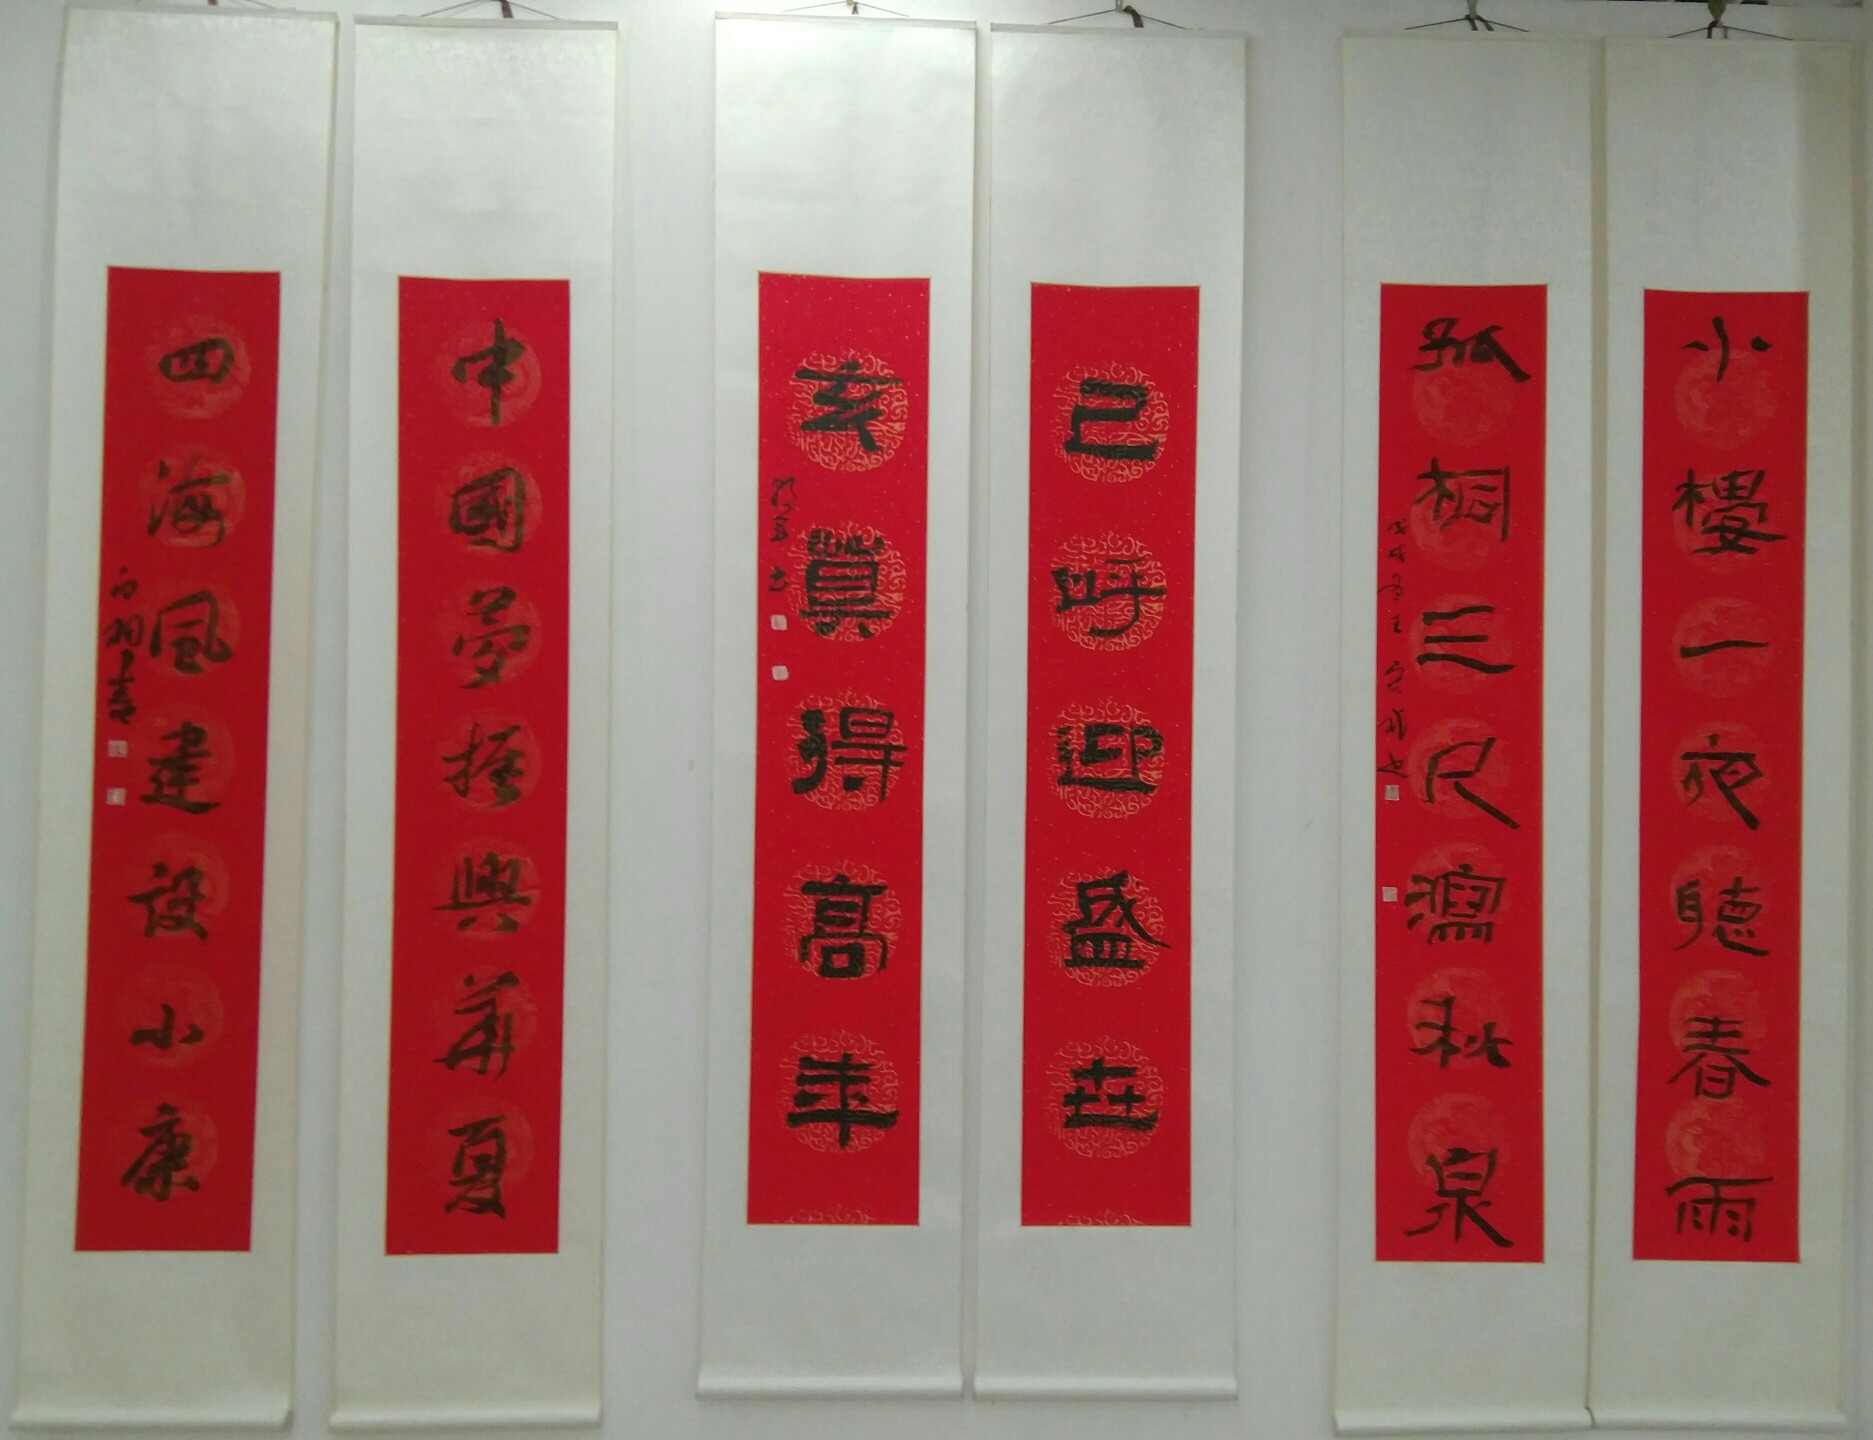 小樓一夜聽春雨
孤桐三尺瀉秋泉
戊戌冬王
己呼迎盛世
亥贊得高年
中國夢振興華夏
四海風建設小康